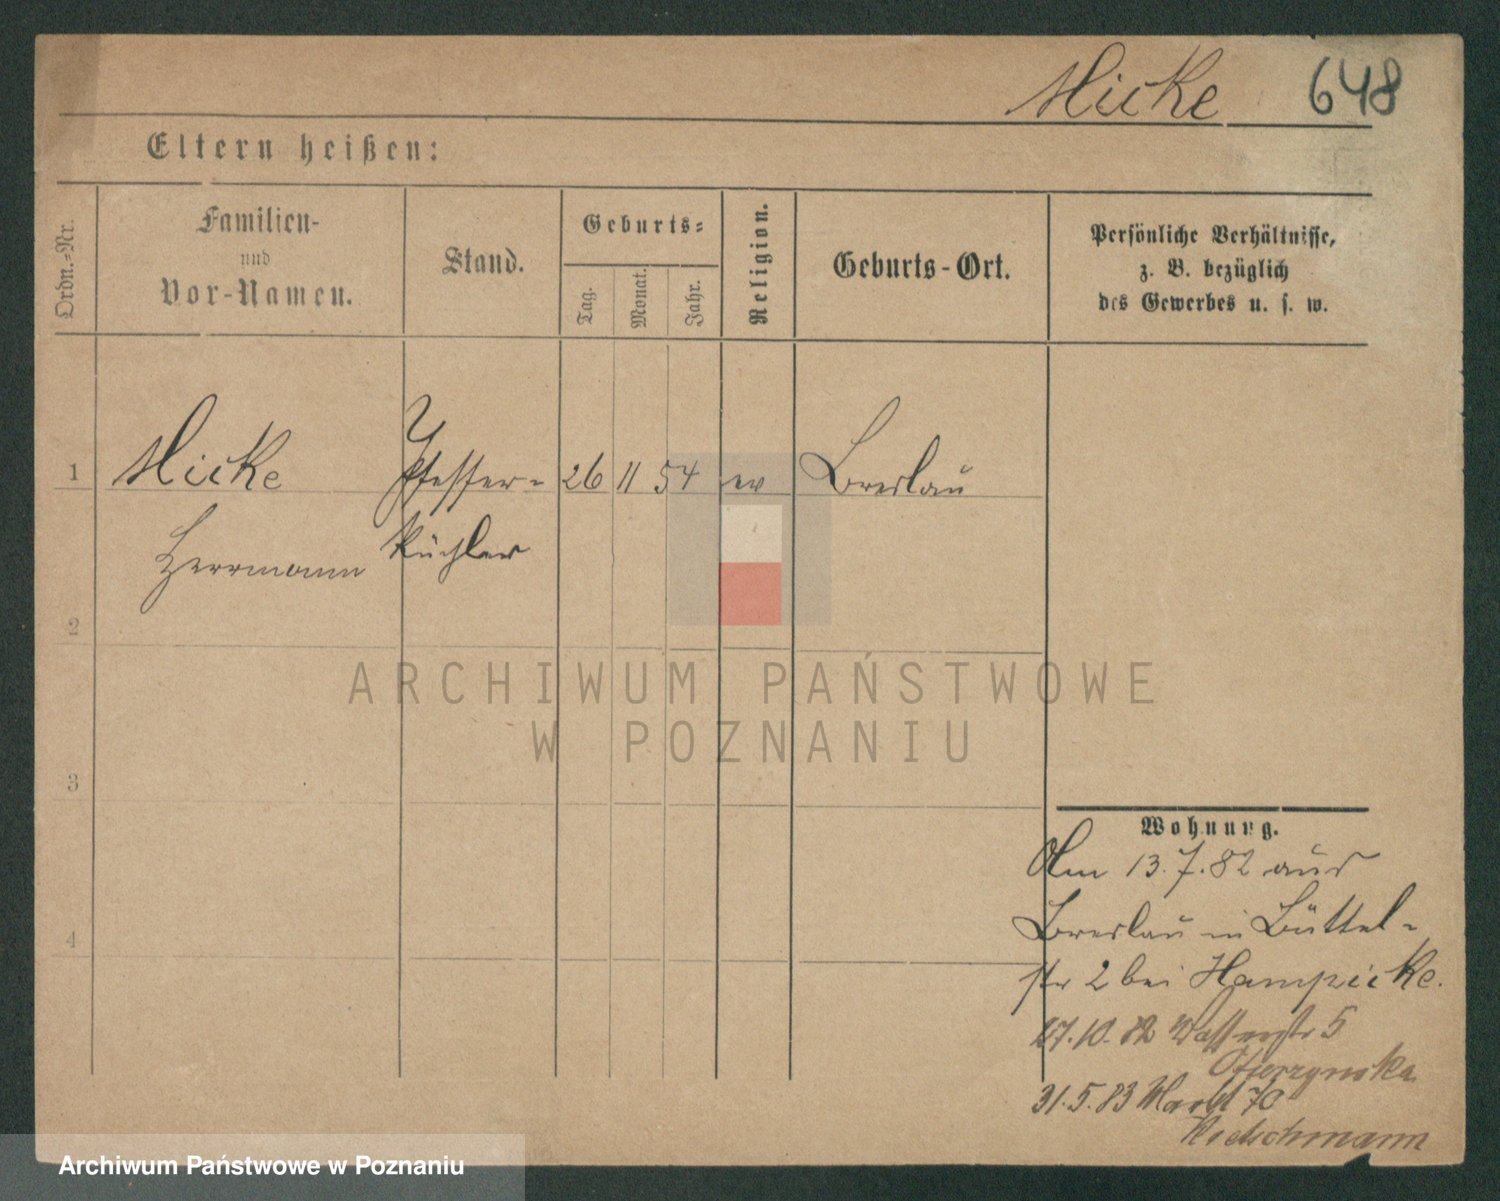 Micke 648
Eltern heißen:
Ordn.-Nr.
Familien-
und
Vor-Namen.
Stand.
Geburts-
Tag.
Monat.
Jahr.
Religion.
Geburts-Ort.
Persönliche Verhältnisse,
z. B. bezüglich
des Gewerbes u. s. w.
1 Micke Pfeffer- 26 11 54 ev Breslau
Herrmann küchler
2
3
4
ARCHIWUM PAŃSTWOWE
W POZNANIU
Wohnung.
Am 13.7.82 aus
Breslau in Büttel-
str 2 bei Hampicke.
27.10.82 Wasserstr 5
31.5.83 Markt 70
Archiwum Państwowe w Poznaniu